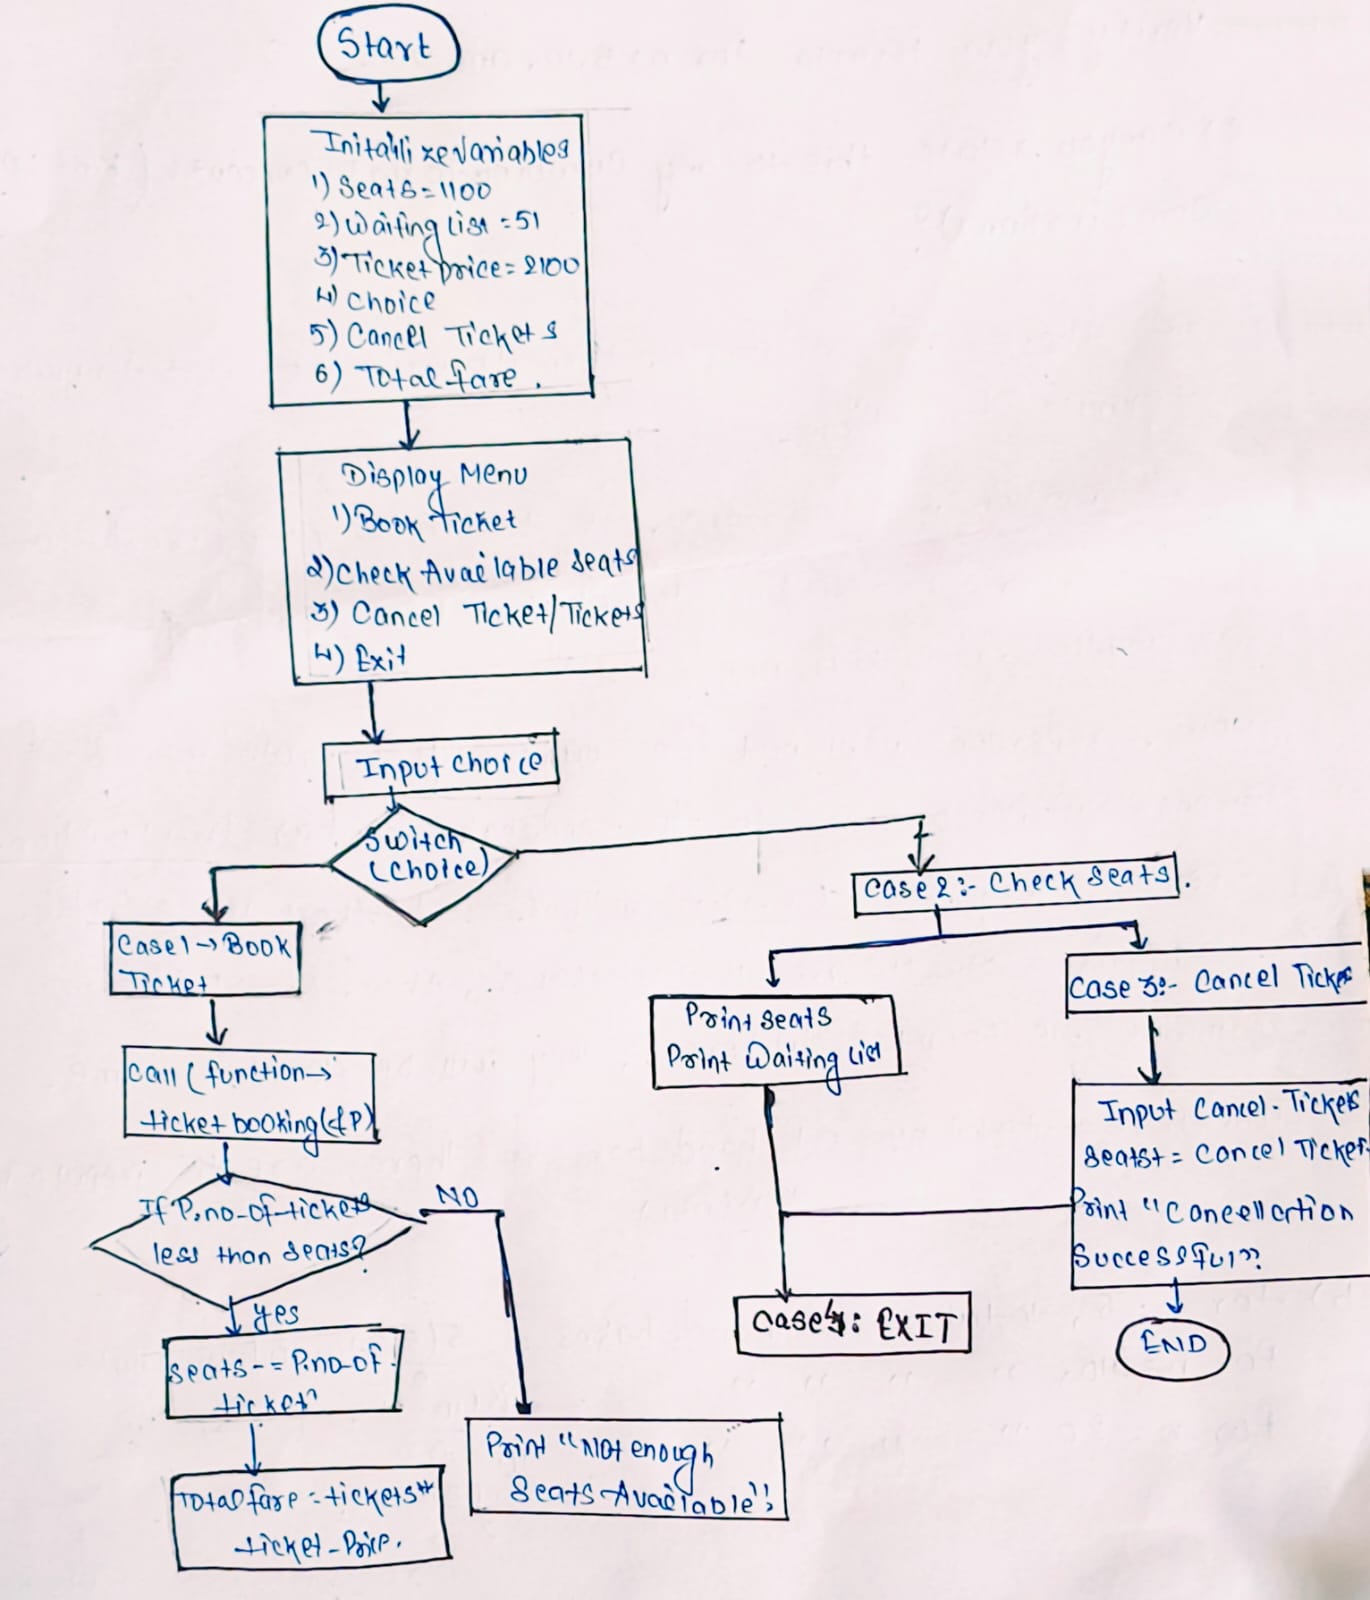 Start
Initalize Variables
1) Seats = 1100
2) Waiting List = 51
3) Ticket price = 2100
4) Choice
5) Cancel Tickets
6) Total fare.
Display Menu
1) Book Ticket
2) Check Available Seats
3) Cancel Ticket/Tickets
4) Exit
Input choice
Switch
(Choice)
Case 1 → Book
Ticket
Call (function →
ticket booking(&P)
If P.no-of-tickets
less than seats?
NO
yes
Seats -= P.no-of-
ticket
Total fare = tickets *
ticket-Price.
Print "Not enough
Seats Available";
Case 2 :- Check Seats.
Print Seats
Print Waiting List
Case 4: EXIT
Case 3:- Cancel Ticket
Input Cancel-Tickets
Seats += Cancel Ticket
Print "Cancellation
Successful"
END